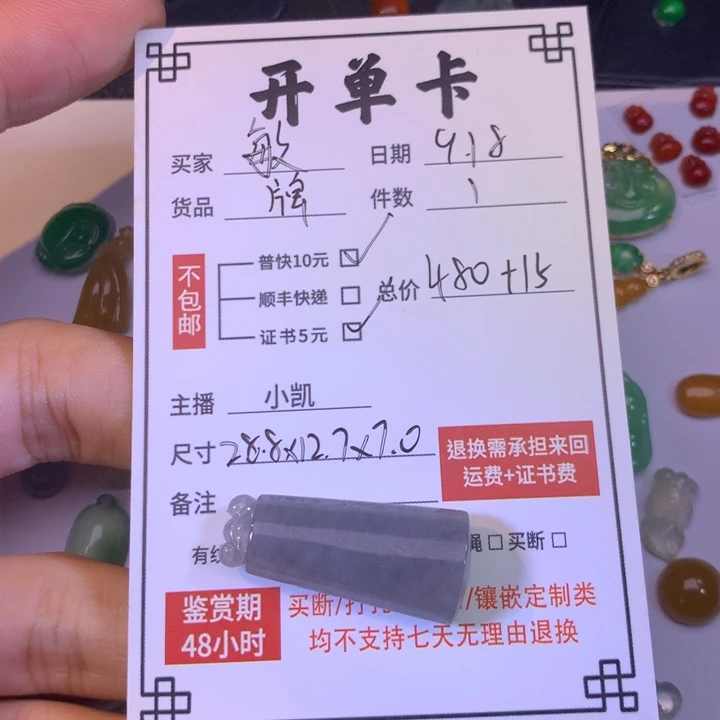 开单卡
买家 敏 日期 9.18
货品 牌 件数 1
不包邮
普快10元
顺丰快递
证书5元
总价 480+15
主播 小凯
尺寸 28.8x12.7x7.0
退换需承担来回
运费+证书费
备注
有纹 绳 买断
鉴赏期
48小时
买断/打 /镶嵌定制类
均不支持七天无理由退换